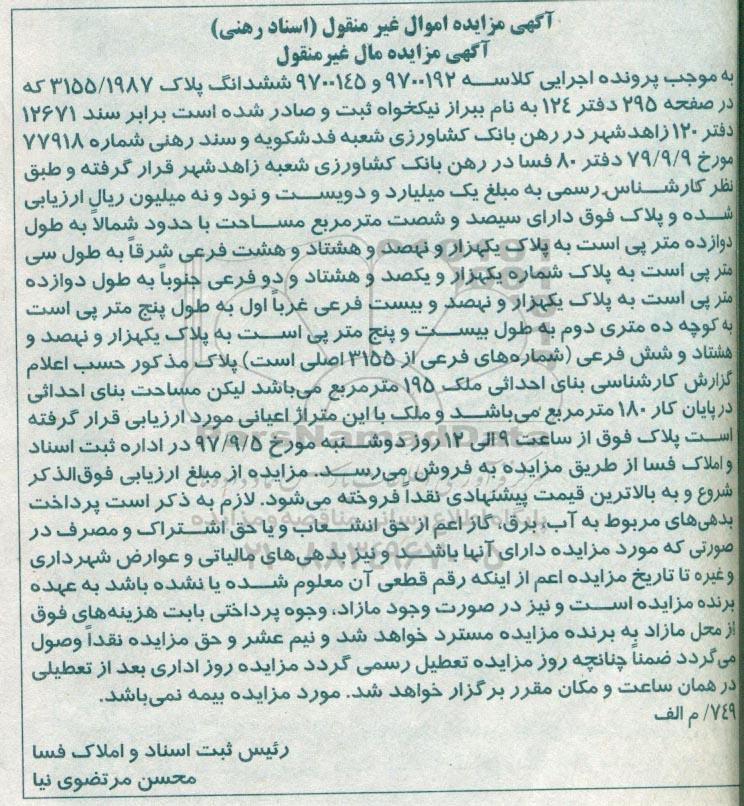 آگهی مزایده اموال غیر منقول (اسناد رهنی)
آگهی مزایده مال غیرمنقول
به موجب پرونده اجرایی کلاســه ۹۷۰۰۱۹۲ و ۹۷۰۰۱۴۵ ششدانگ پلاک ۳۱۵۵/۱۹۸۷ که
در صفحه ۲۹۵ دفتر ۱۲۴ به نام ببراز نیکخواه ثبت و صادر شده است برابر سند ۱۲۶۷۱
دفتر ۱۲۰ زاهدشهر در رهن بانک کشاورزی شعبه فدشکویه و سند رهنی شماره ۷۷۹۱۸
مورخ ۷۹/۹/۹ دفتر ۸۰ فسا در رهن بانک کشاورزی شعبه زاهدشهر قرار گرفته و طبق
نظر کارشناس رسمی به مبلغ یک میلیارد و دویست و نود و نه میلیون ریال ارزیابی
شده و پلاک فوق دارای سیصد و شصت مترمربع مساحت با حدود شمالاً به طول
دوازده متر پی است به پلاک یکهزار و نهصد و هشتاد و هشت فرعی شرقاً به طول سی
متر پی است به پلاک شماره یکهزار و یکصد و هشتاد و دو فرعی جنوباً به طول دوازده
متر پی است به پلاک یکهزار و نهصد و بیست فرعی غرباً اول به طول پنج متر پی است
به کوچه ده متری دوم به طول بیست و پنج متر پی است به پلاک یکهزار و نهصد و
هشتاد و شش فرعی (شماره‌های فرعی از ۳۱۵۵ اصلی است) پلاک مذکور حسب اعلام
گزارش کارشناسی بنای احداثی ملک ۱۹۵ مترمربع می‌باشد لیکن مساحت بنای احداثی
در پایان کار ۱۸۰ مترمربع می‌باشد و ملک با این متراژ اعیانی مورد ارزیابی قرار گرفته
است پلاک فوق از ساعت ۹ الی ۱۲ روز دوشنبه مورخ ۹۷/۹/۵ در اداره ثبت اسناد
و املاک فسا از طریق مزایده به فروش می‌رسد. مزایده از مبلغ ارزیابی فوق‌الذکر
شروع و به بالاترین قیمت پیشنهادی نقداً فروخته می‌شود. لازم به ذکر است پرداخت
بدهی‌های مربوط به آب، برق، گاز اعم از حق انشعاب و یا حق اشتراک و مصرف در
صورتی که مورد مزایده دارای آنها باشد و نیز بدهی‌های مالیاتی و عوارض شهرداری
و غیره تا تاریخ مزایده اعم از اینکه رقم قطعی آن معلوم شده یا نشده باشد به عهده
برنده مزایده است و نیز در صورت وجود مازاد، وجوه پرداختی بابت هزینه‌های فوق
از محل مازاد به برنده مزایده مسترد خواهد شد و نیم عشر و حق مزایده نقداً وصول
می‌گردد ضمناً چنانچه روز مزایده تعطیل رسمی گردد مزایده روز اداری بعد از تعطیلی
در همان ساعت و مکان مقرر برگزار خواهد شد. مورد مزایده بیمه نمی‌باشد.
۷۴۹/ م الف
رئیس ثبت اسناد و املاک فسا
محسن مرتضوی نیا